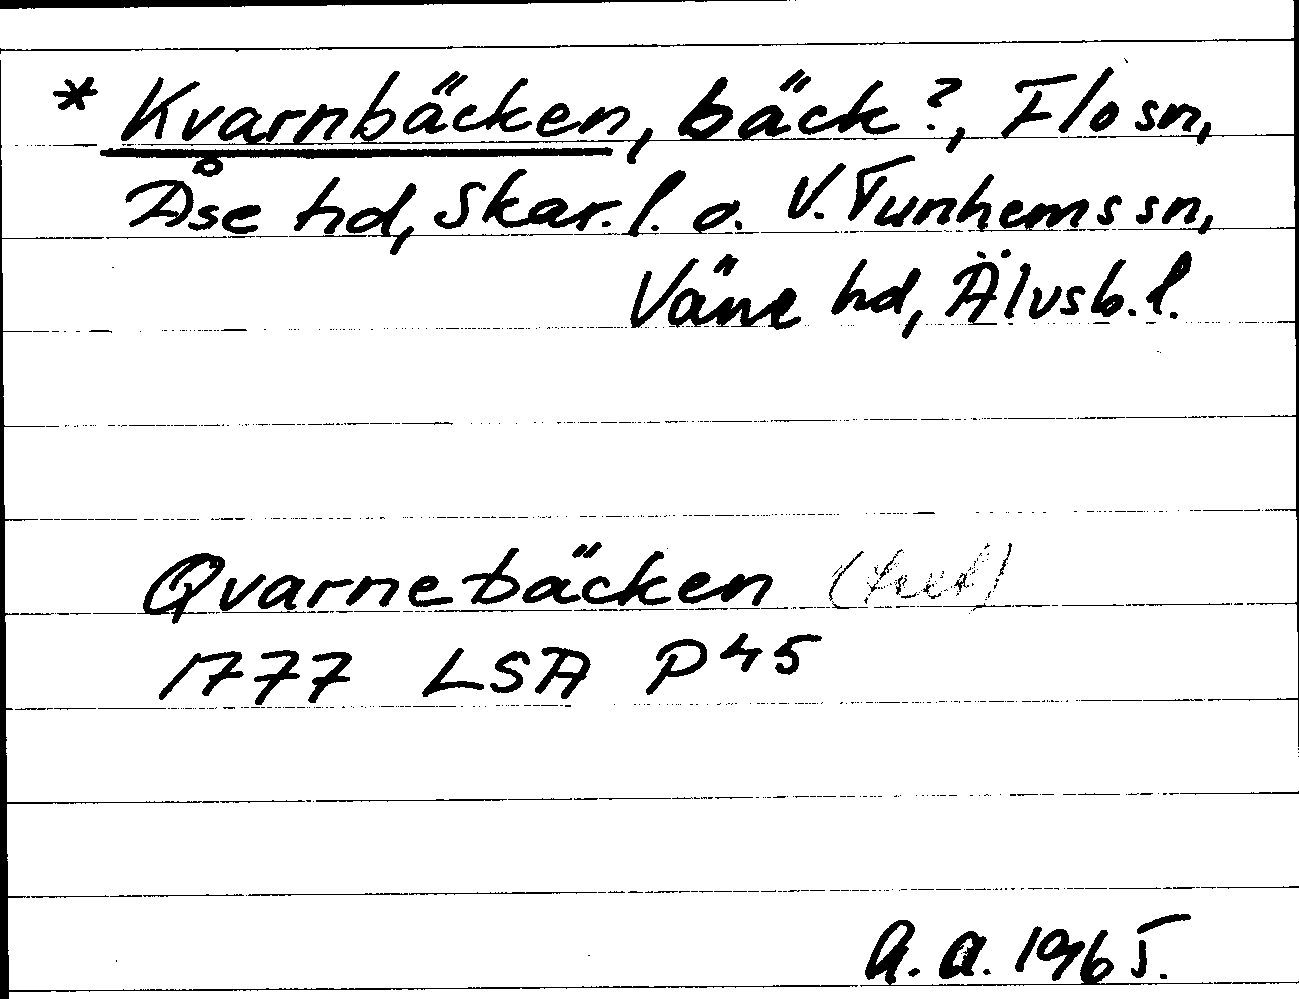 * Kvarnbäcken, bäck?, Flo sn,
Åse hd, Skar. l. o. V. Tunhems sn,
Väne hd, Älvsb. l.
Qvarnebäcken
1777 LSA P45
A. A. 1965.